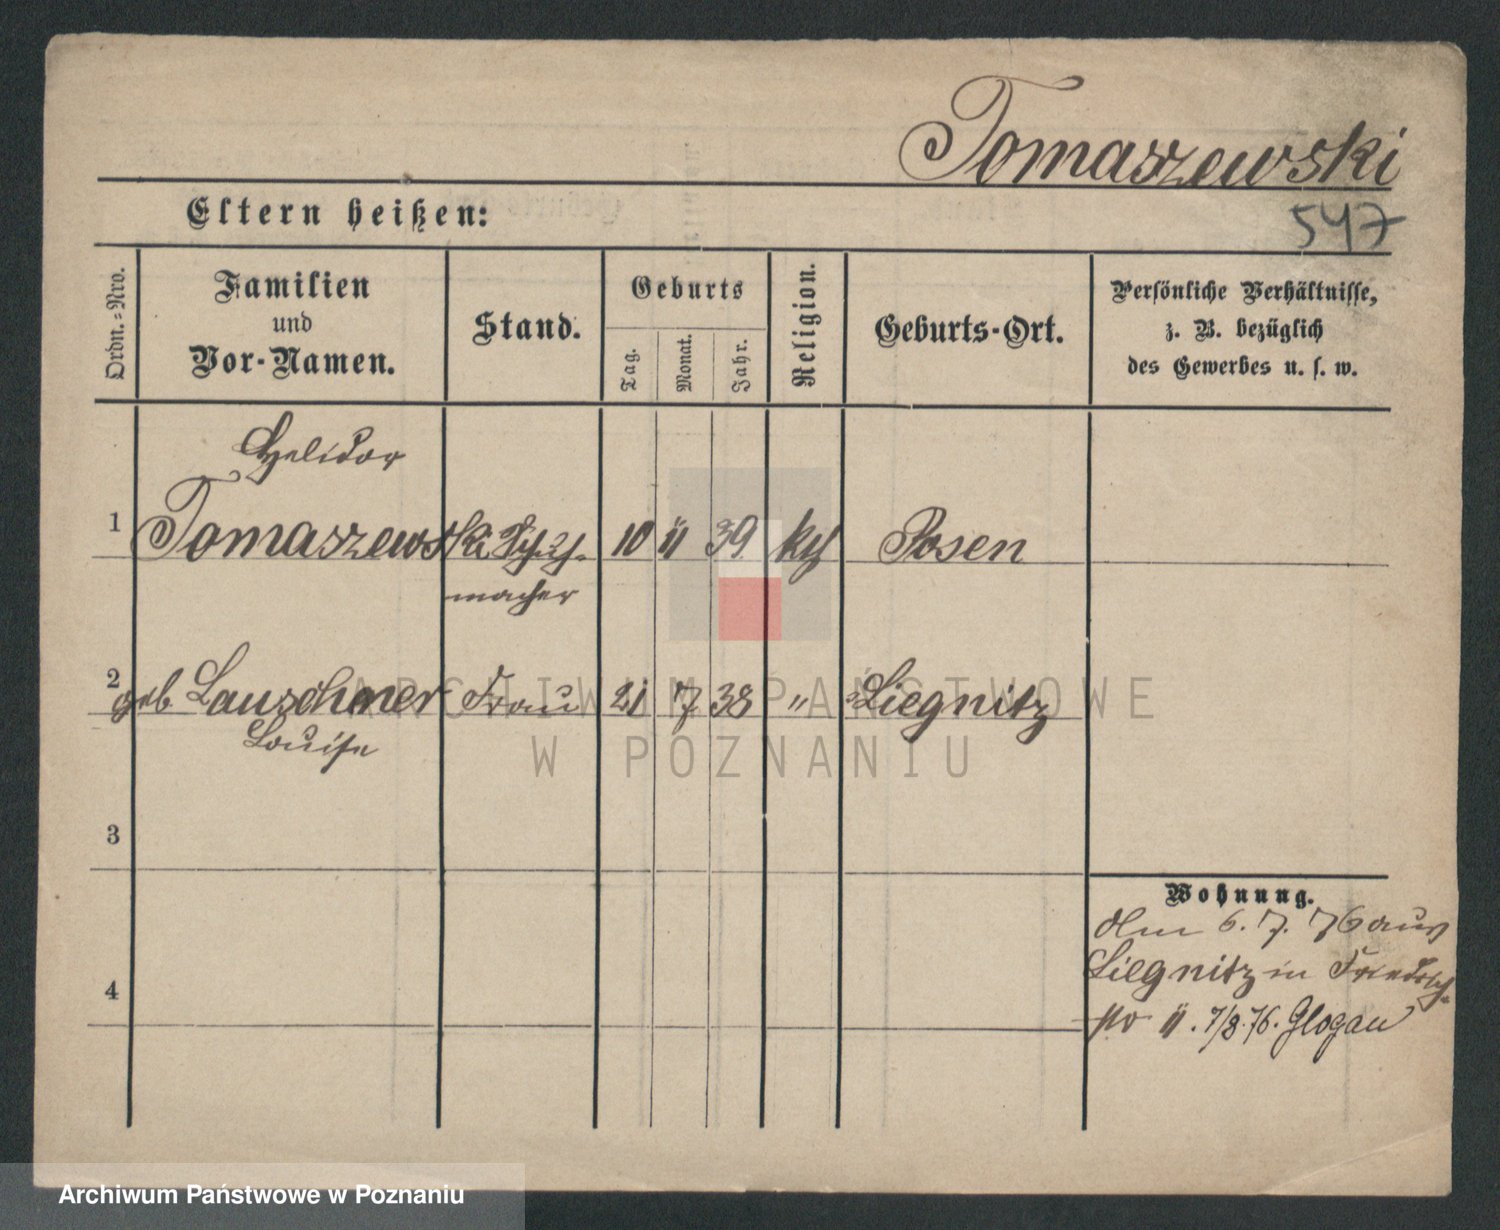 Tomaszewski
Eltern heißen:
547
Ordn.-Nro.
Familien
und
Vor-Namen.
Stand.
Geburts
Tag.
Monat.
Jahr.
Religion.
Geburts-Ort.
Persönliche Verhältnisse,
z. B. bezüglich
des Gewerbes u. s. w.
Helidor
1 Tomaszewski Schuh- 10 11 39 kth Posen
macher
2 geb Lauschner Frau 21 7 38 " Liegnitz
Louise
3
4
Wohnung.
Am 6. 7. 76 aus
Liegnitz in Friedrich-
str 11. 7/8.76. Glogau
ARCHIWUM PAŃSTWOWE
W POZNANIU
Archiwum Państwowe w Poznaniu